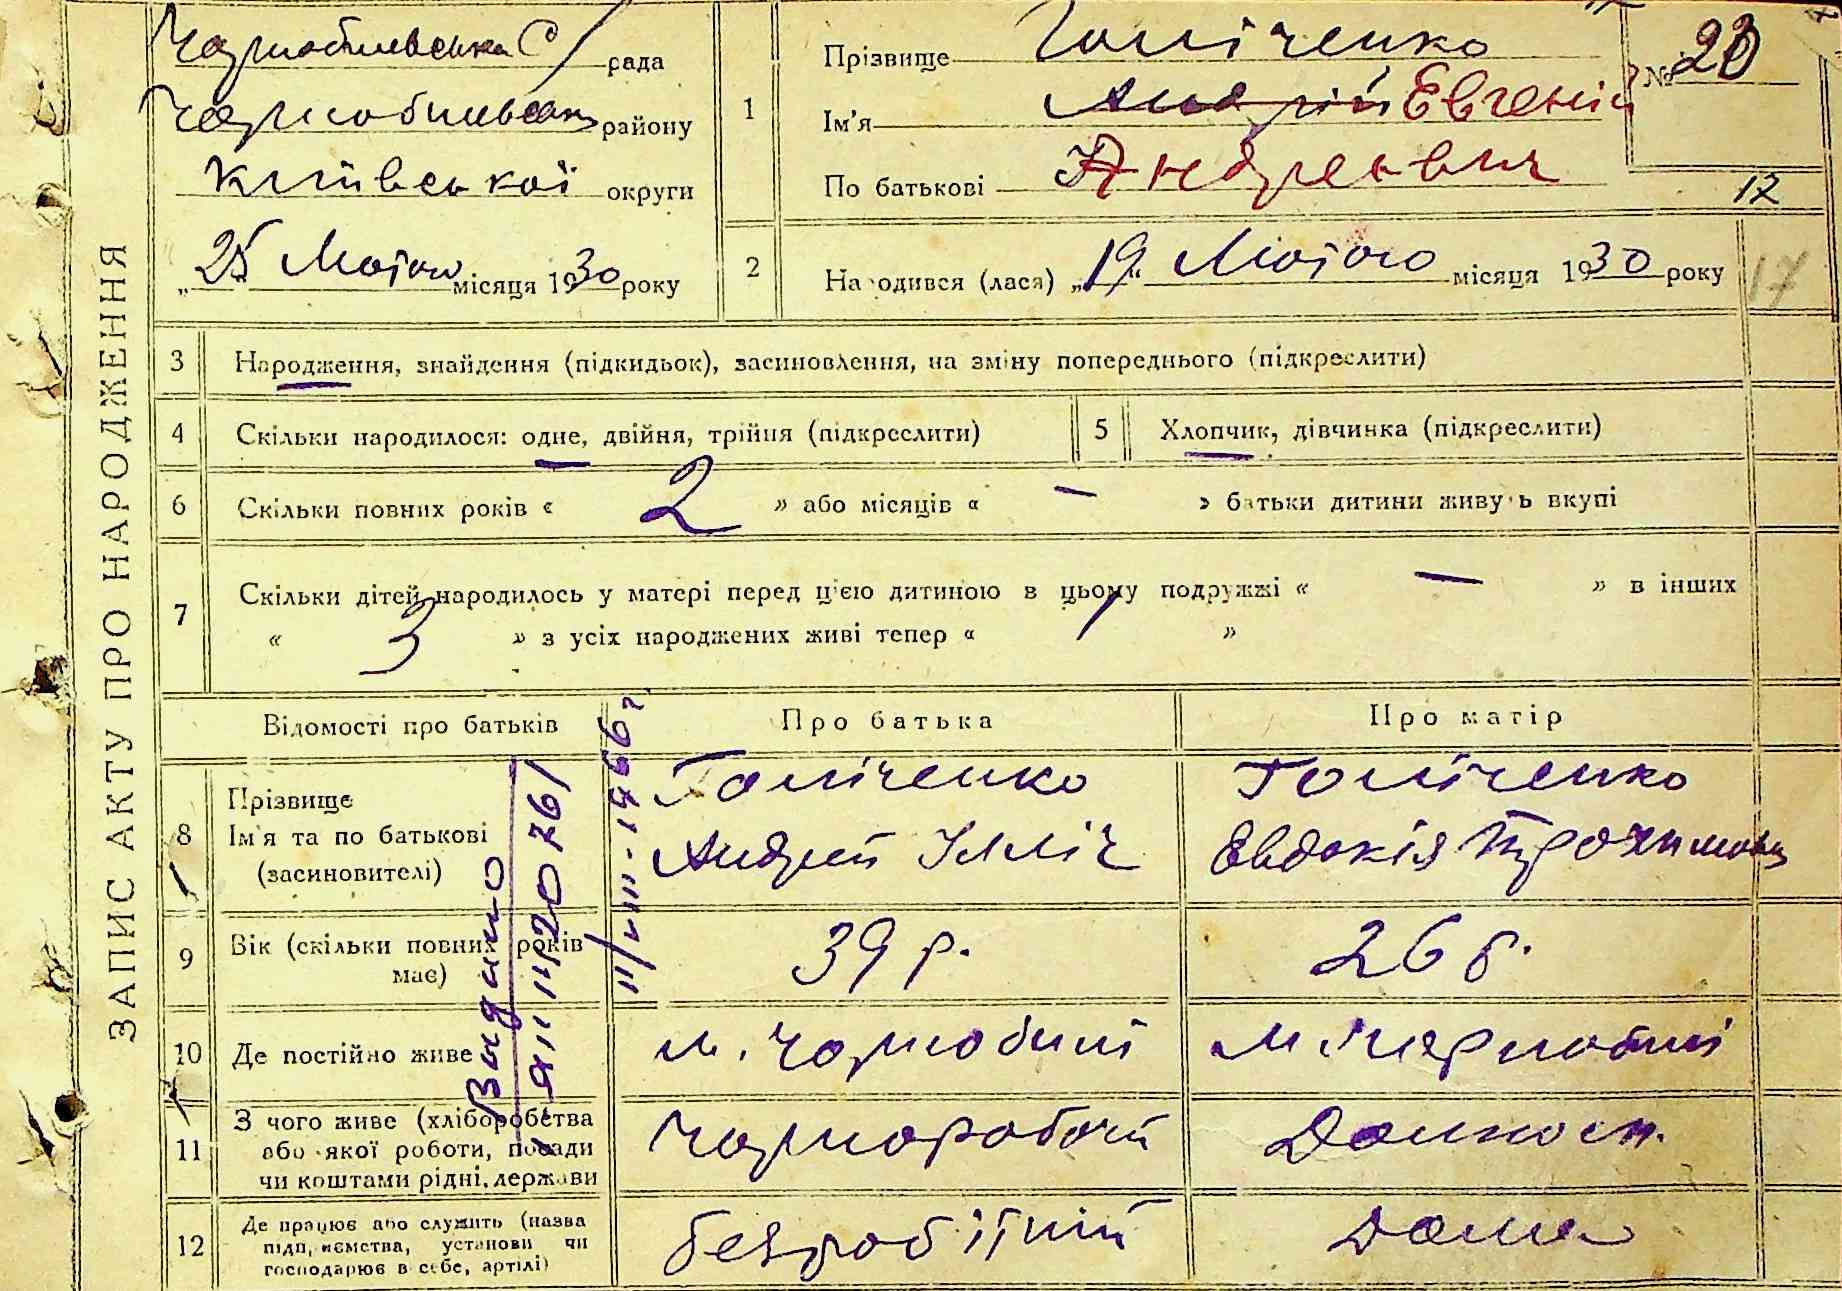 ЗАПИС АКТУ ПРО НАРОДЖЕННЯ
Чорнобильська С/рада
Чорнобильськ району
Київської округи
„25“ Лютого місяця 1930 року
1
Прізвище Гомніченко
Ім'я Андрій Евгеній
По батькові Андреевич
№ 23
12
2
Народився (лася) „19“ Лютого місяця 1930 року
17
3 Народження, знайдення (підкидьок), засиновлення, на зміну попереднього (підкреслити)
4 Скільки народилося: одне, двійня, трійня (підкреслити)
5 Хлопчик, дівчинка (підкреслити)
6 Скільки повних років « 2 » або місяців « — » батьки дитини живуть вкупі
7 Скільки дітей народилось у матері перед цією дитиною в цьому подружжі « — » в інших
« 3 » з усіх народжених живі тепер « 1 »
Відомості про батьків
Про батька
Про матір
8 Прізвище
Ім'я та по батькові
(засиновителі)
Гомніченко
Андрей Ілліч
Гомніченко
Евдокія Трохимовн
9 Вік (скільки повних років
має)
39 р.
26 р.
10 Де постійно живе
м. Чорнобилі
м. Чорнобилі
11 З чого живе (хліборобства
або якої роботи, посади
чи коштами рідні, держави
Чорноробочий
Домносп.
12 Де працює або служить (назва
підприємства, установи чи
господарює в себе, артілі)
безробітний
Дома
Выдано
ЯП 1120761
11/VIII-1966 г